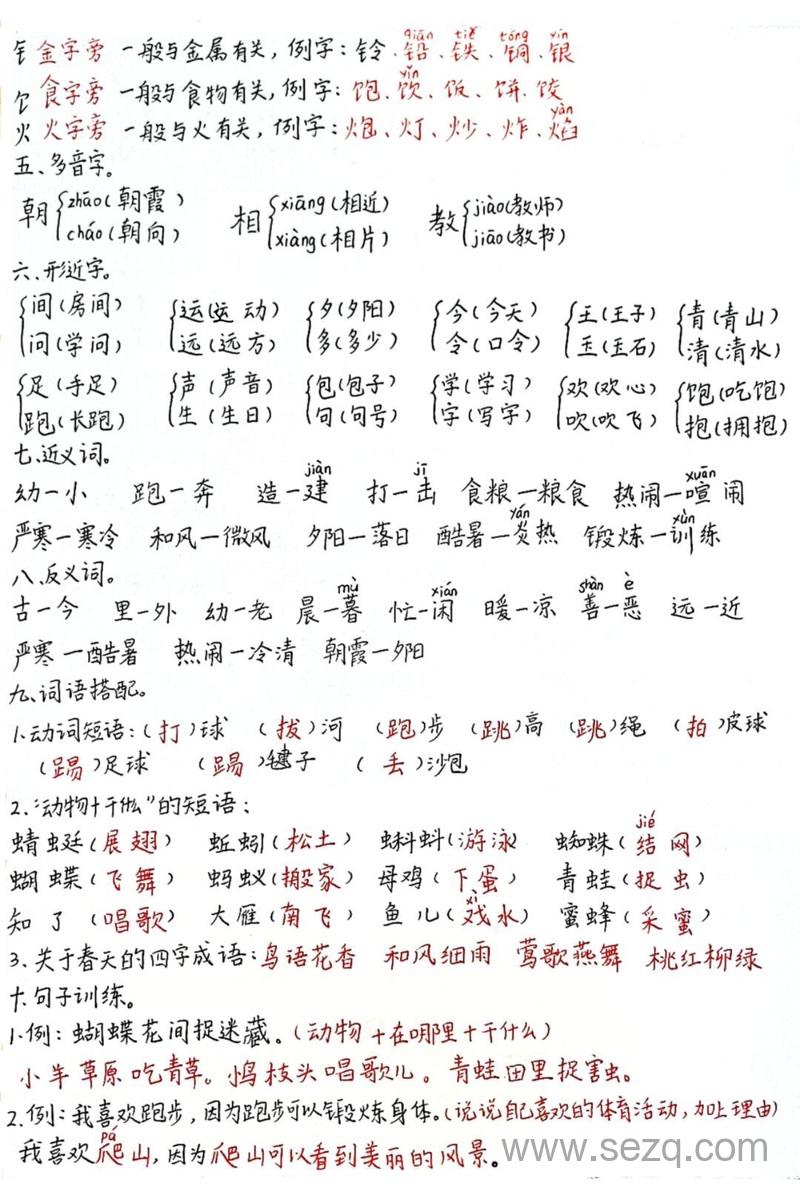 钅金字旁 一般与金属有关,例字:铃、铅(qiān)、铁(tiě)、铜(tóng)、银(yín)
饣食字旁 一般与食物有关,例字:饱、饮(yǐn)、饭、饼、饺
火 火字旁 一般与火有关,例字:炮、灯、炒、炸、焰(yàn)
五、多音字。
朝{zhāo(朝霞) cháo(朝向) 相{xiāng(相近) xiàng(相片) 教{jiào(教师) jiāo(教书)
六、形近字。
{间(房间) {运(运动) {夕(夕阳) {今(今天) {王(王子) {青(青山)
问(学问) 远(远方) 多(多少) 令(口令) 玉(玉石) 清(清水)
{足(手足) {声(声音) {包(包子) {学(学习) {欢(欢心) {饱(吃饱)
跑(长跑) 生(生日) 句(句号) 字(写字) 吹(吹飞) 抱(拥抱)
七、近义词。
幼—小 跑—奔 造—建(jiàn) 打—击(jī) 食粮—粮食 热闹—喧(xuān)闹
严寒—寒冷 和风—微风 夕阳—落日 酷暑—炎(yán)热 锻炼—训(xùn)练
八、反义词。
古—今 里—外 幼—老 晨—暮(mù) 忙—闲(xián) 暖—凉 善(shàn)—恶(è) 远—近
严寒—酷暑 热闹—冷清 朝霞—夕阳
九、词语搭配。
1.动词短语:(打)球 (拔)河 (跑)步 (跳)高 (跳)绳 (拍)皮球
(踢)足球 (踢)毽子 (丢)沙包
2.“动物+干什么”的短语:
蜻蜓(展翅) 蚯蚓(松土) 蝌蚪(游泳) 蜘蛛(结(jié)网)
蝴蝶(飞舞) 蚂蚁(搬家) 母鸡(下蛋) 青蛙(捉虫)
知了(唱歌) 大雁(南飞) 鱼儿(戏(xì)水) 蜜蜂(采蜜)
3.关于春天的四字成语:鸟语花香 和风细雨 莺歌燕舞 桃红柳绿
十、句子训练。
1.例:蝴蝶花间捉迷藏。(动物+在哪里+干什么)
小羊草原吃青草。鸟枝头唱歌儿。青蛙田里捉害虫。
2.例:我喜欢跑步,因为跑步可以锻炼身体。(说说自己喜欢的体育活动,加上理由)
我喜欢爬(pá)山,因为爬山可以看到美丽的风景。
www.sezq.com